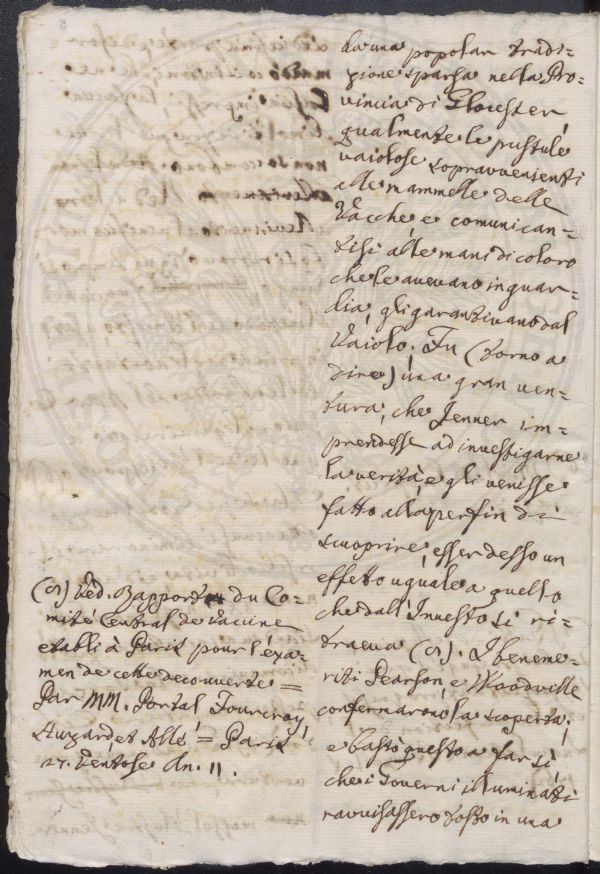 da una popolar tradi=
zione sparsa nella Pro=
vincia di Glocester,
qualmente le pustule
vaiolose sopravvenienti
alle mammelle delle
Vacche, e comunican=
tisi alle mani di coloro
che le avevano in guar=
dia, gli garantivano dal
Vaiolo. Fu (torno a
dire) una gran ven=
tura, che Jenner im=
prendesse ad investigarne
la verità, e gli venisse
fatto alla perfin di
scuoprire, esser desso un
effetto uguale a quello
che dall'Innesto si ri=
traeva (5). I beneme=
riti Pearson, e Woodville
confermarono la scoperta;
e bastò questo a far sì,
che i Governi illuminati
ravvisassero tosto in una
(5) Ved. Rapport du Co=
mité Central de Vaccine
etabli à Paris pour l'exa=
men de cette decouverte =
Par MM. Portal, Fourcroy,
Huzard, et Allé = Paris
Ventose An. 11.